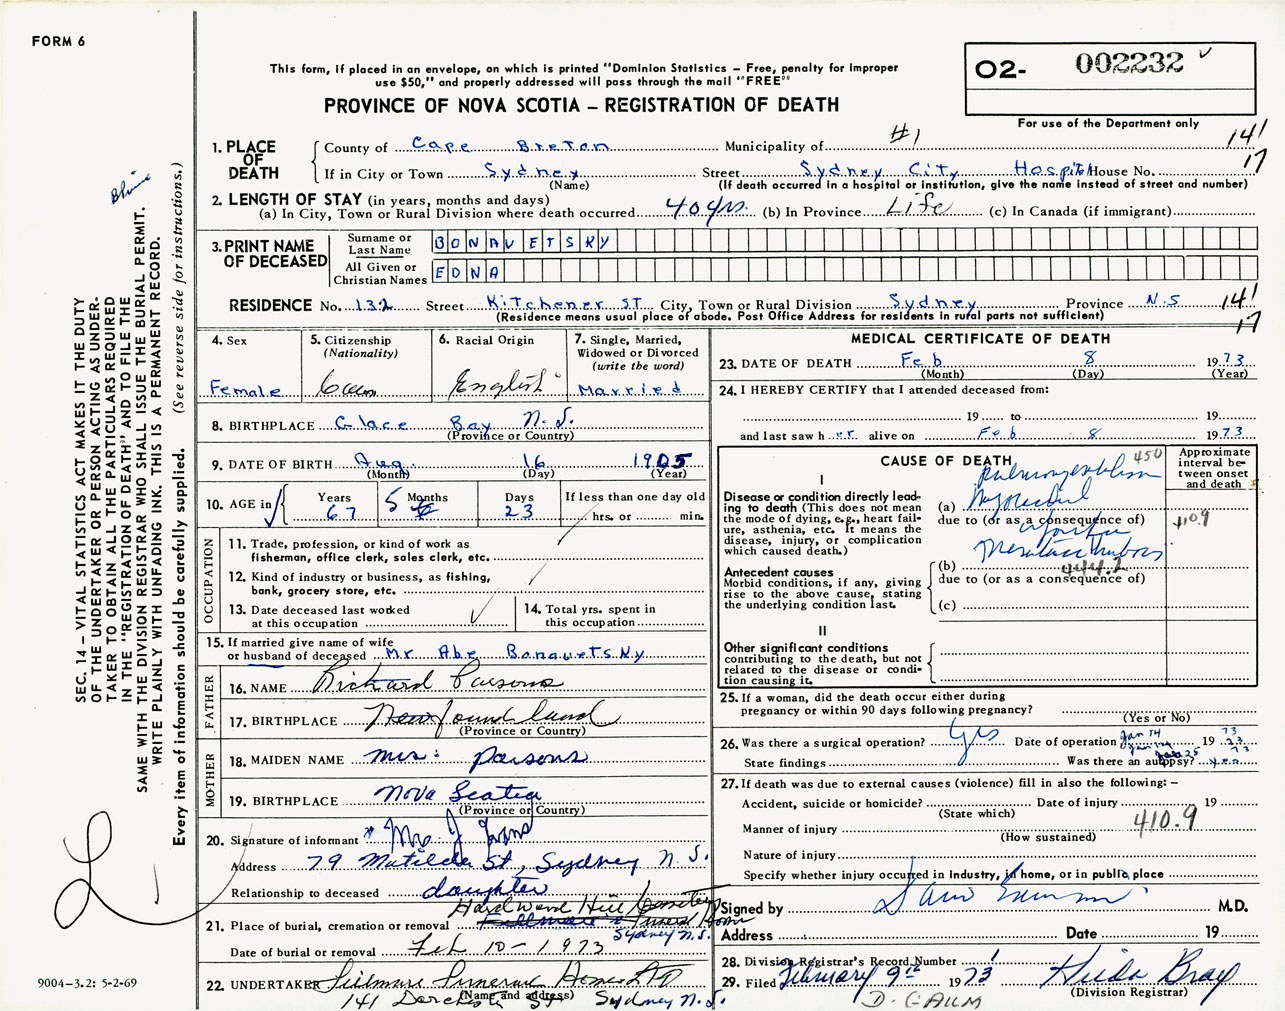 FORM 6
This form, if placed in an envelope, on which is printed "Dominion Statistics – Free, penalty for improper
use $50," and properly addressed will pass through the mail "FREE"
PROVINCE OF NOVA SCOTIA – REGISTRATION OF DEATH
O2- 002232
For use of the Department only
1. PLACE OF DEATH
County of Cape Breton Municipality of #1 141
If in City or Town Sydney Street Sydney City Hospital House No. 17
(Name) (If death occurred in a hospital or institution, give the name instead of street and number)
2. LENGTH OF STAY (in years, months and days)
(a) In City, Town or Rural Division where death occurred 40 yrs. (b) In Province Life (c) In Canada (if immigrant)
3. PRINT NAME OF DECEASED
Surname or Last Name BONAVETSKY
All Given or Christian Names EDNA
RESIDENCE No. 132 Street Kitchener ST. City, Town or Rural Division Sydney Province N.S 141
(Residence means usual place of abode. Post Office Address for residents in rural parts not sufficient) 17
4. Sex
Female
5. Citizenship
(Nationality)
6. Racial Origin
English
7. Single, Married,
Widowed or Divorced
(write the word)
Married
8. BIRTHPLACE Glace Bay N.S.
(Province or Country)
9. DATE OF BIRTH Aug. 16 1905
(Month) (Day) (Year)
10. AGE in
Years 67
Months 5
Days 23
If less than one day old
hrs. or min.
OCCUPATION
11. Trade, profession, or kind of work as
fisherman, office clerk, sales clerk, etc.
12. Kind of industry or business, as fishing,
bank, grocery store, etc.
13. Date deceased last worked
at this occupation
14. Total yrs. spent in
this occupation
15. If married give name of wife
or husband of deceased Mr Abe Bonavetsky
FATHER
16. NAME Richard Parsons
17. BIRTHPLACE Newfoundland
(Province or Country)
MOTHER
18. MAIDEN NAME Mrs. Parsons
19. BIRTHPLACE Nova Scotia
(Province or Country)
20. Signature of informant Mrs. J.
Address 79 Matilda St, Sydney N.S.
Relationship to deceased daughter
Hardwood Hill Cemetery
21. Place of burial, cremation or removal Sydney N.S.
Date of burial or removal Feb 10-1973
22. UNDERTAKER Fillmore Funeral Home Ltd
(Name and address)
141 Dorchester St Sydney N.S.
MEDICAL CERTIFICATE OF DEATH
23. DATE OF DEATH Feb 8 1973
(Month) (Day) (Year)
24. I HEREBY CERTIFY that I attended deceased from:
19 to 19
and last saw her alive on Feb 8 1973
CAUSE OF DEATH 450
Approximate
interval be-
tween onset
and death
I
Disease or condition directly lead-
ing to death (This does not mean
the mode of dying, e.g., heart fail-
ure, asthenia, etc. It means the
disease, injury, or complication
which caused death.)
pulmonary embolism
(a) Myocardial
due to (or as a consequence of) 410.9
infarction
(b) Mesenteric thrombosis 444.2
due to (or as a consequence of)
(c)
Antecedent causes
Morbid conditions, if any, giving
rise to the above cause, stating
the underlying condition last.
II
Other significant conditions
contributing to the death, but not
related to the disease or condi-
tion causing it.
25. If a woman, did the death occur either during
pregnancy or within 90 days following pregnancy?
(Yes or No)
26. Was there a surgical operation? Yes Date of operation Jan 14 19 73
State findings Was there an autopsy? yes
27. If death was due to external causes (violence) fill in also the following: –
Accident, suicide or homicide? Date of injury 19
(State which)
Manner of injury 410.9
(How sustained)
Nature of injury
Specify whether injury occurred in industry, in home, or in public place
Signed by M.D.
Address Date 19
28. Division Registrar's Record Number
29. Filed February 9th 1973 Hilda Bray
(Division Registrar)
D. GAUM
SEC. 14 – VITAL STATISTICS ACT MAKES IT THE DUTY
OF THE UNDERTAKER OR PERSON ACTING AS UNDER-
TAKER TO OBTAIN ALL THE PARTICULARS REQUIRED
IN THE "REGISTRATION OF DEATH" AND TO FILE THE
SAME WITH THE DIVISION REGISTRAR WHO SHALL ISSUE THE BURIAL PERMIT.
WRITE PLAINLY WITH UNFADING INK. THIS IS A PERMANENT RECORD.
Every item of information should be carefully supplied. (See reverse side for instructions.)
9004-3.2: 5-2-69